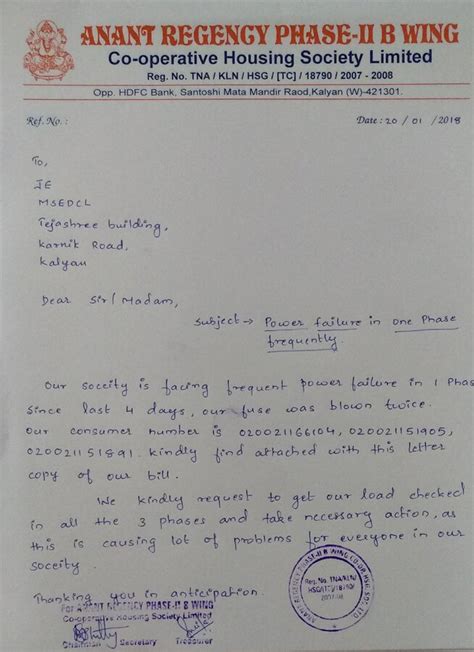 ANANT REGENCY PHASE-II B WING
Co-operative Housing Society Limited
Reg. No. TNA / KLN / HSG / [TC] / 18790 / 2007 - 2008
Opp. HDFC Bank, Santoshi Mata Mandir Raod,Kalyan (W)-421301.
Ref. No. : Date : 20 / 01 / 2018
To,
JE
MSEDCL
Tejashree building,
Karnik Road,
Kalyan
Dear Sir/Madam,
Subject → Power failure in one Phase
frequently.
Our soccity is facing frequent power failure in 1 Phas
Since last 4 days, our fuse was blown twice.
Our consumer number is 020021166104, 020021151905,
020021151891. kindly find attached with this letter
copy of our bill.
We kindly request to get our load checked
in all the 3 phases and take necessary action, as
this is causing lot of problems for everyone in our
soceity.
Thanking you in anticipation.
For ANANT REGENCY PHASE-II B WING
Co-operative Housing Society Limited
Chairman Secretary Treasurer
ANANT REGENCY PHASE-II B WING CO-OP. HSG. SOC. LTD.
Reg. No. TNA/KLN/
HSG/(TC)/18790/
2007-08